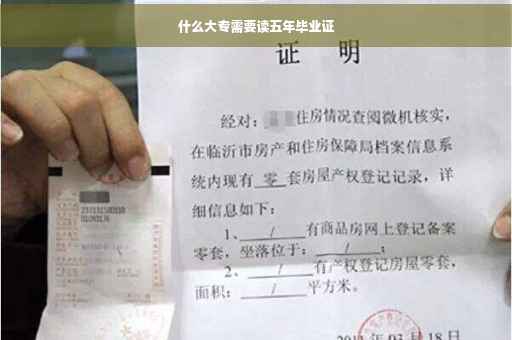 什么大专需要读五年毕业证
证 明
经对：住房情况查阅微机核实，
在临沂市房产和住房保障局档案信息系
统内现有 零 套房屋产权登记记录，详
细信息如下：
1、 / 有商品房网上登记备案
零套，坐落位于： / ；
2、 / 有产权登记房屋零套，
面积： / 平方米。
03月18日